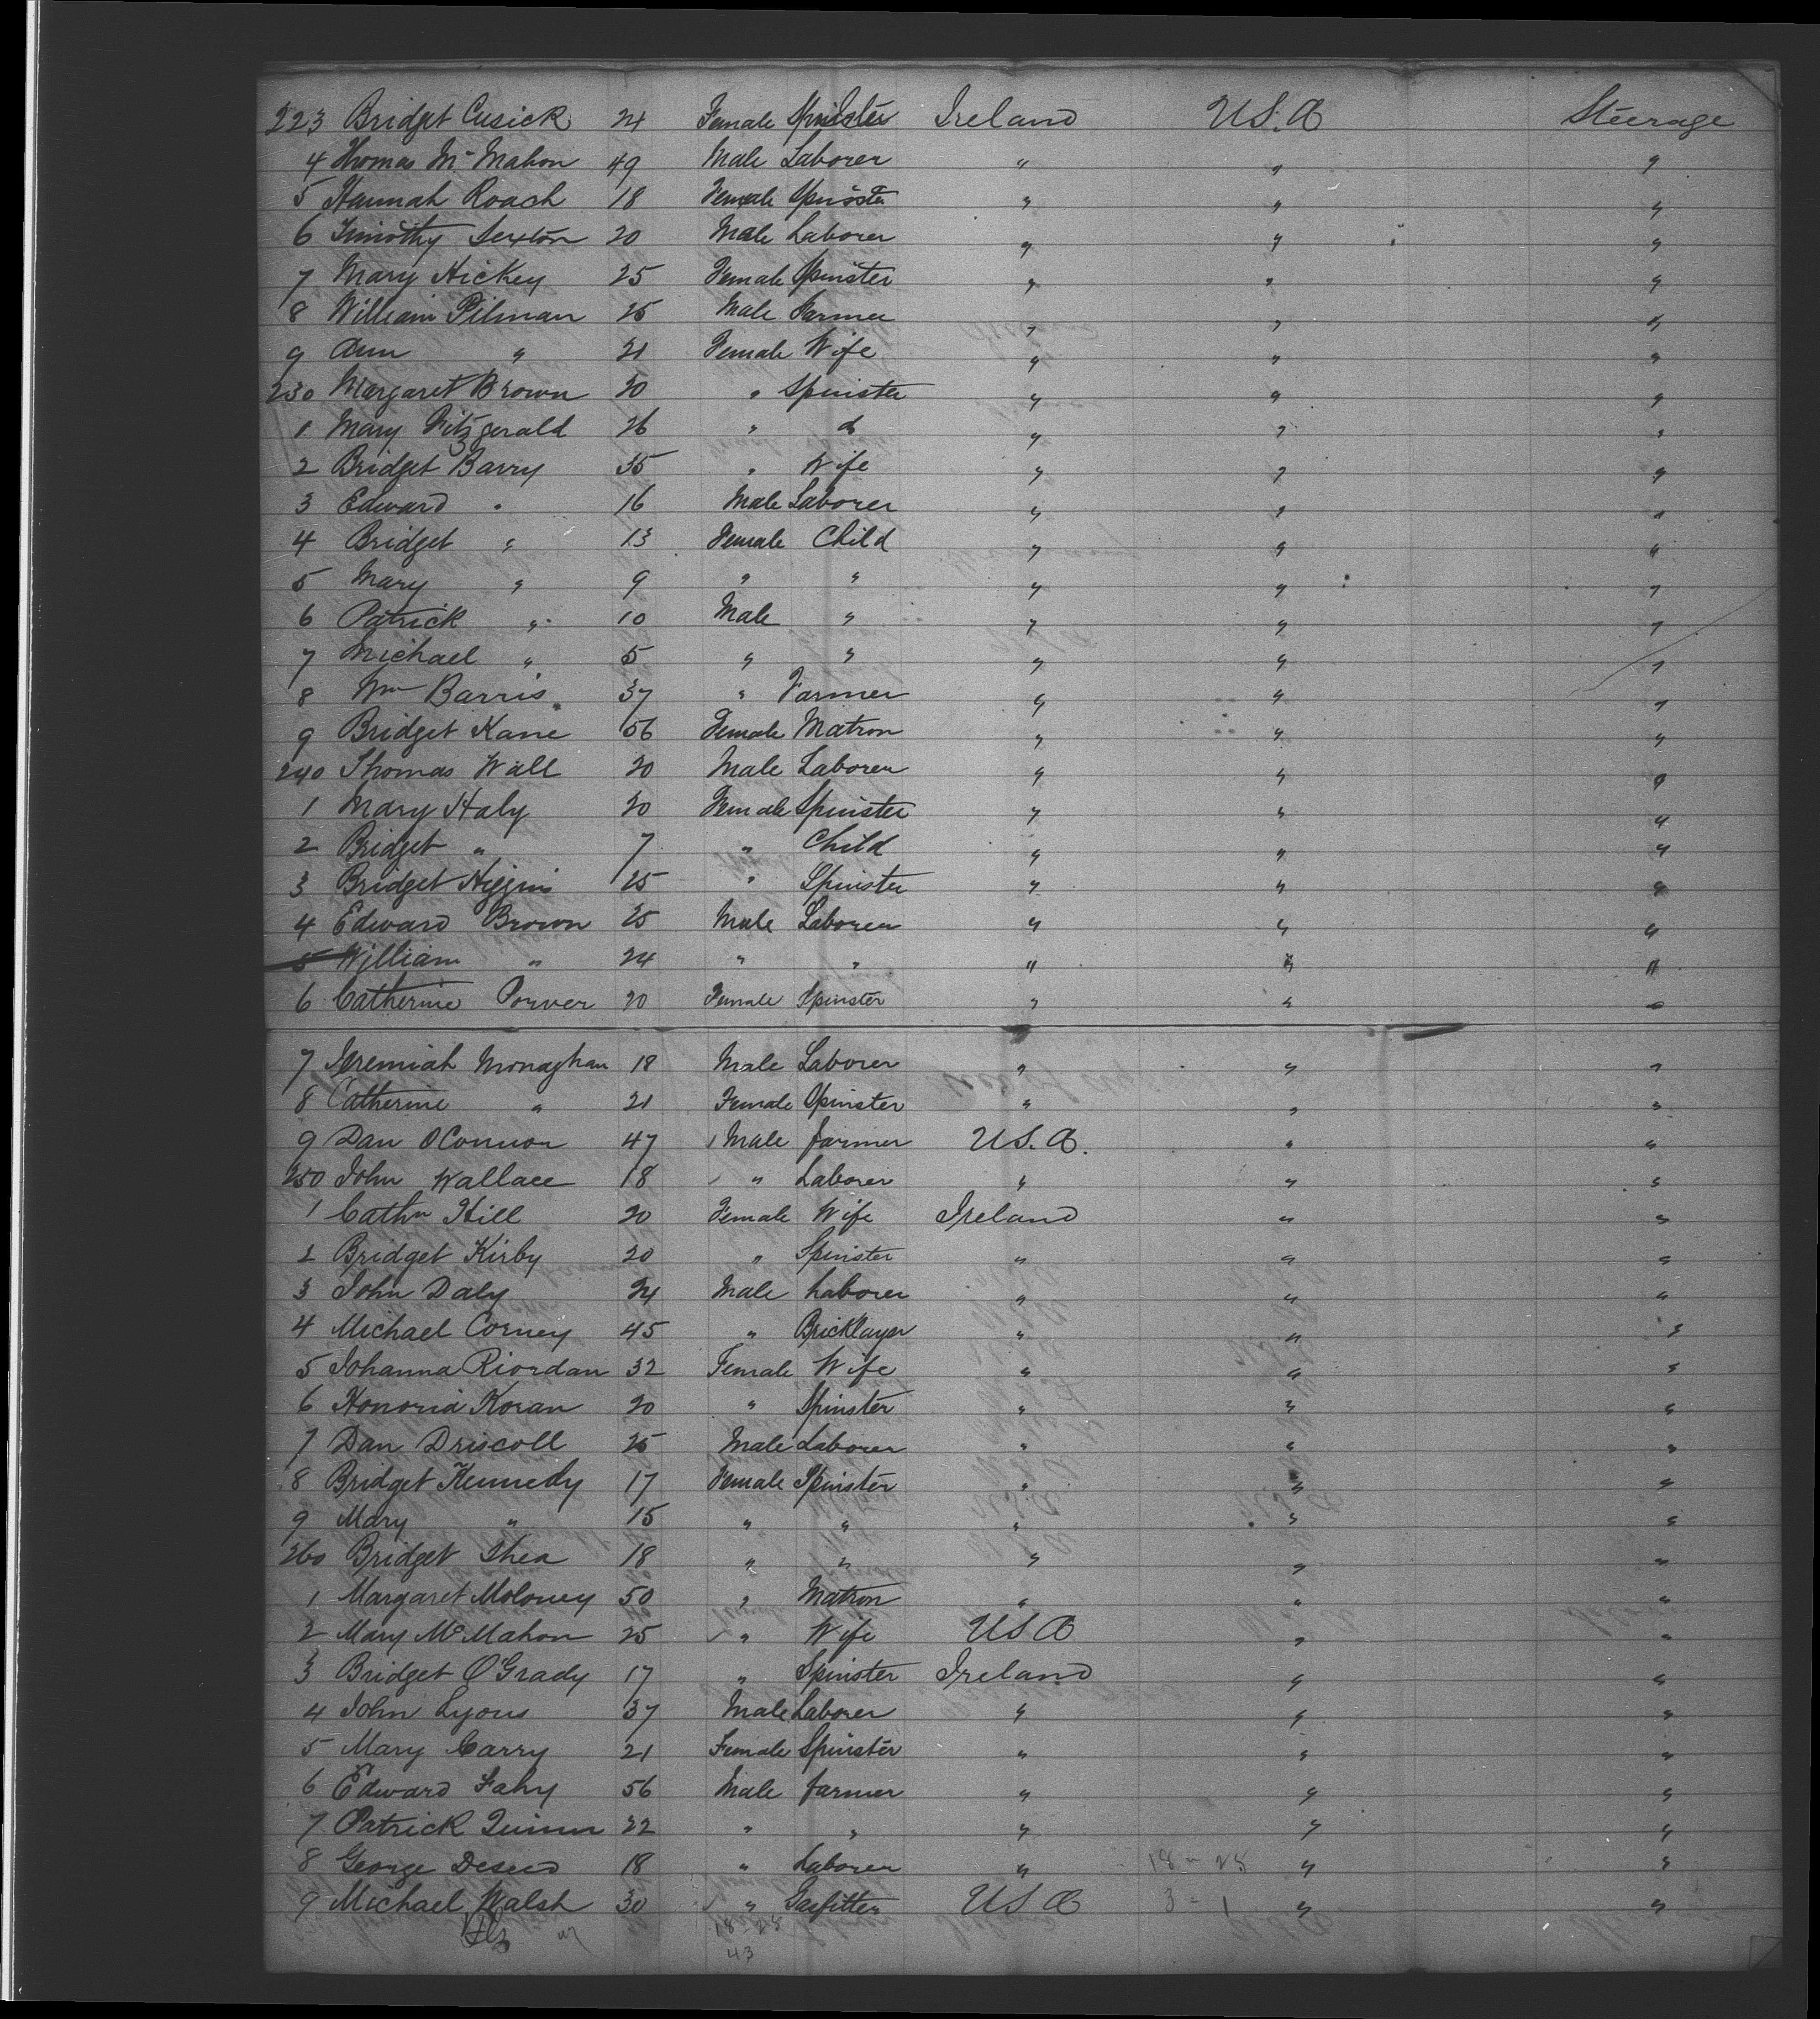 223 Bridget Cusick 24 Female Spinster Ireland U.S.A Steerage
4 Thomas Mc Mahon 49 Male Laborer " " "
5 Hannah Roach 18 Female Spinster " " "
6 Timothy Sexton 20 Male Laborer " " "
7 Mary Hickey 25 Female Spinster " " "
8 William Pilman 25 Male Farmer " " "
9 Ann " 21 Female Wife " " "
230 Margaret Brown 20 " Spinster " " "
1 Mary Fitzgerald 26 " do " " "
2 Bridget Barry 35 " Wife " " "
3 Edward " 16 Male Laborer " " "
4 Bridget " 13 Female Child " " "
5 Mary " 9 " " " " "
6 Patrick " 10 Male " " " "
7 Michael " 5 " " " " "
8 Wm Barris 37 " Farmer " " "
9 Bridget Kane 56 Female Matron " " "
240 Thomas Wall 20 Male Laborer " " "
1 Mary Haly 20 Female Spinster " " "
2 Bridget " 7 " Child " " "
3 Bridget Higgins 25 " Spinster " " "
4 Edward Brown 25 Male Laborer " " "
5 William " 24 " " " " "
6 Catherine Power 20 Female Spinster " " "
7 Jeremiah Monaghan 18 Male Laborer " " "
8 Catherine " 21 Female Spinster " " "
9 Dan OConnor 47 Male farmer U.S.A. " "
250 John Wallace 18 " Laborer " " "
1 Cathn Hill 20 Female Wife Ireland " "
2 Bridget Kirby 20 " Spinster " " "
3 John Daly 24 Male Laborer " " "
4 Michael Corney 45 " Bricklayer " " "
5 Johanna Riordan 32 Female Wife " " "
6 Honoria Koran 20 " Spinster " " "
7 Dan Driscoll 25 Male Laborer " " "
8 Bridget Kennedy 17 Female Spinster " " "
9 Mary " 15 " " " " "
260 Bridget Shea 18 " " " " "
1 Margaret Moloney 50 " Matron " " "
2 Mary McMahon 25 " Wife USA " "
3 Bridget O'Grady 17 " Spinster Ireland " "
4 John Lyons 37 Male Laborer " " "
5 Mary Carry 21 Female Spinster " " "
6 Edward Fahy 56 Male farmer " " "
7 Patrick Quinn 22 " " " " "
8 George 18 " Laborer " 18 - 28 " "
9 Michael Walsh 30 " Gasfitter USA 3 - 1 " "
18 - 28
43